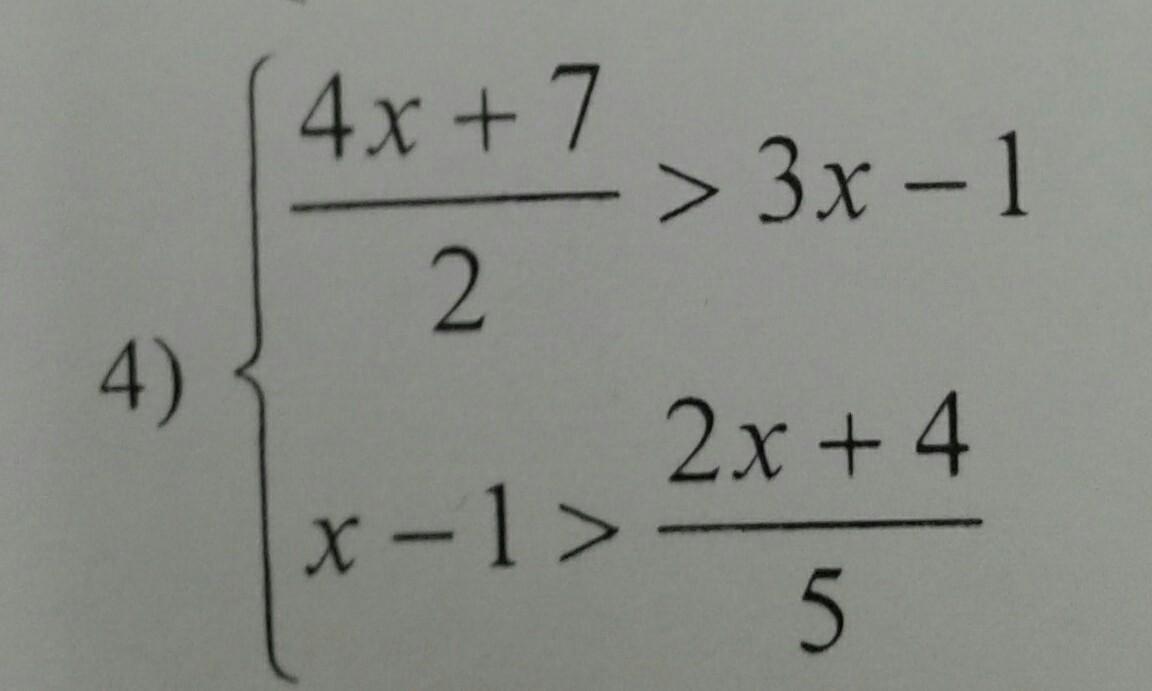 4) { (4x + 7)/2 > 3x − 1
x − 1 > (2x + 4)/5